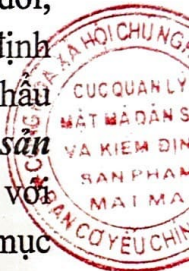 đổi,
định
hẩu
sản
với
mục
XÃ HỘI CHỦ NG
CỤC QUẢN LÝ
MẬT MÃ DÂN S
VÀ KIỂM ĐỊN
SẢN PHẨM
MẬT MÃ
BAN CƠ YẾU CHÍN